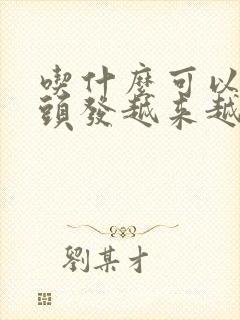 喫什麼可以
頭發越来越
劉某才